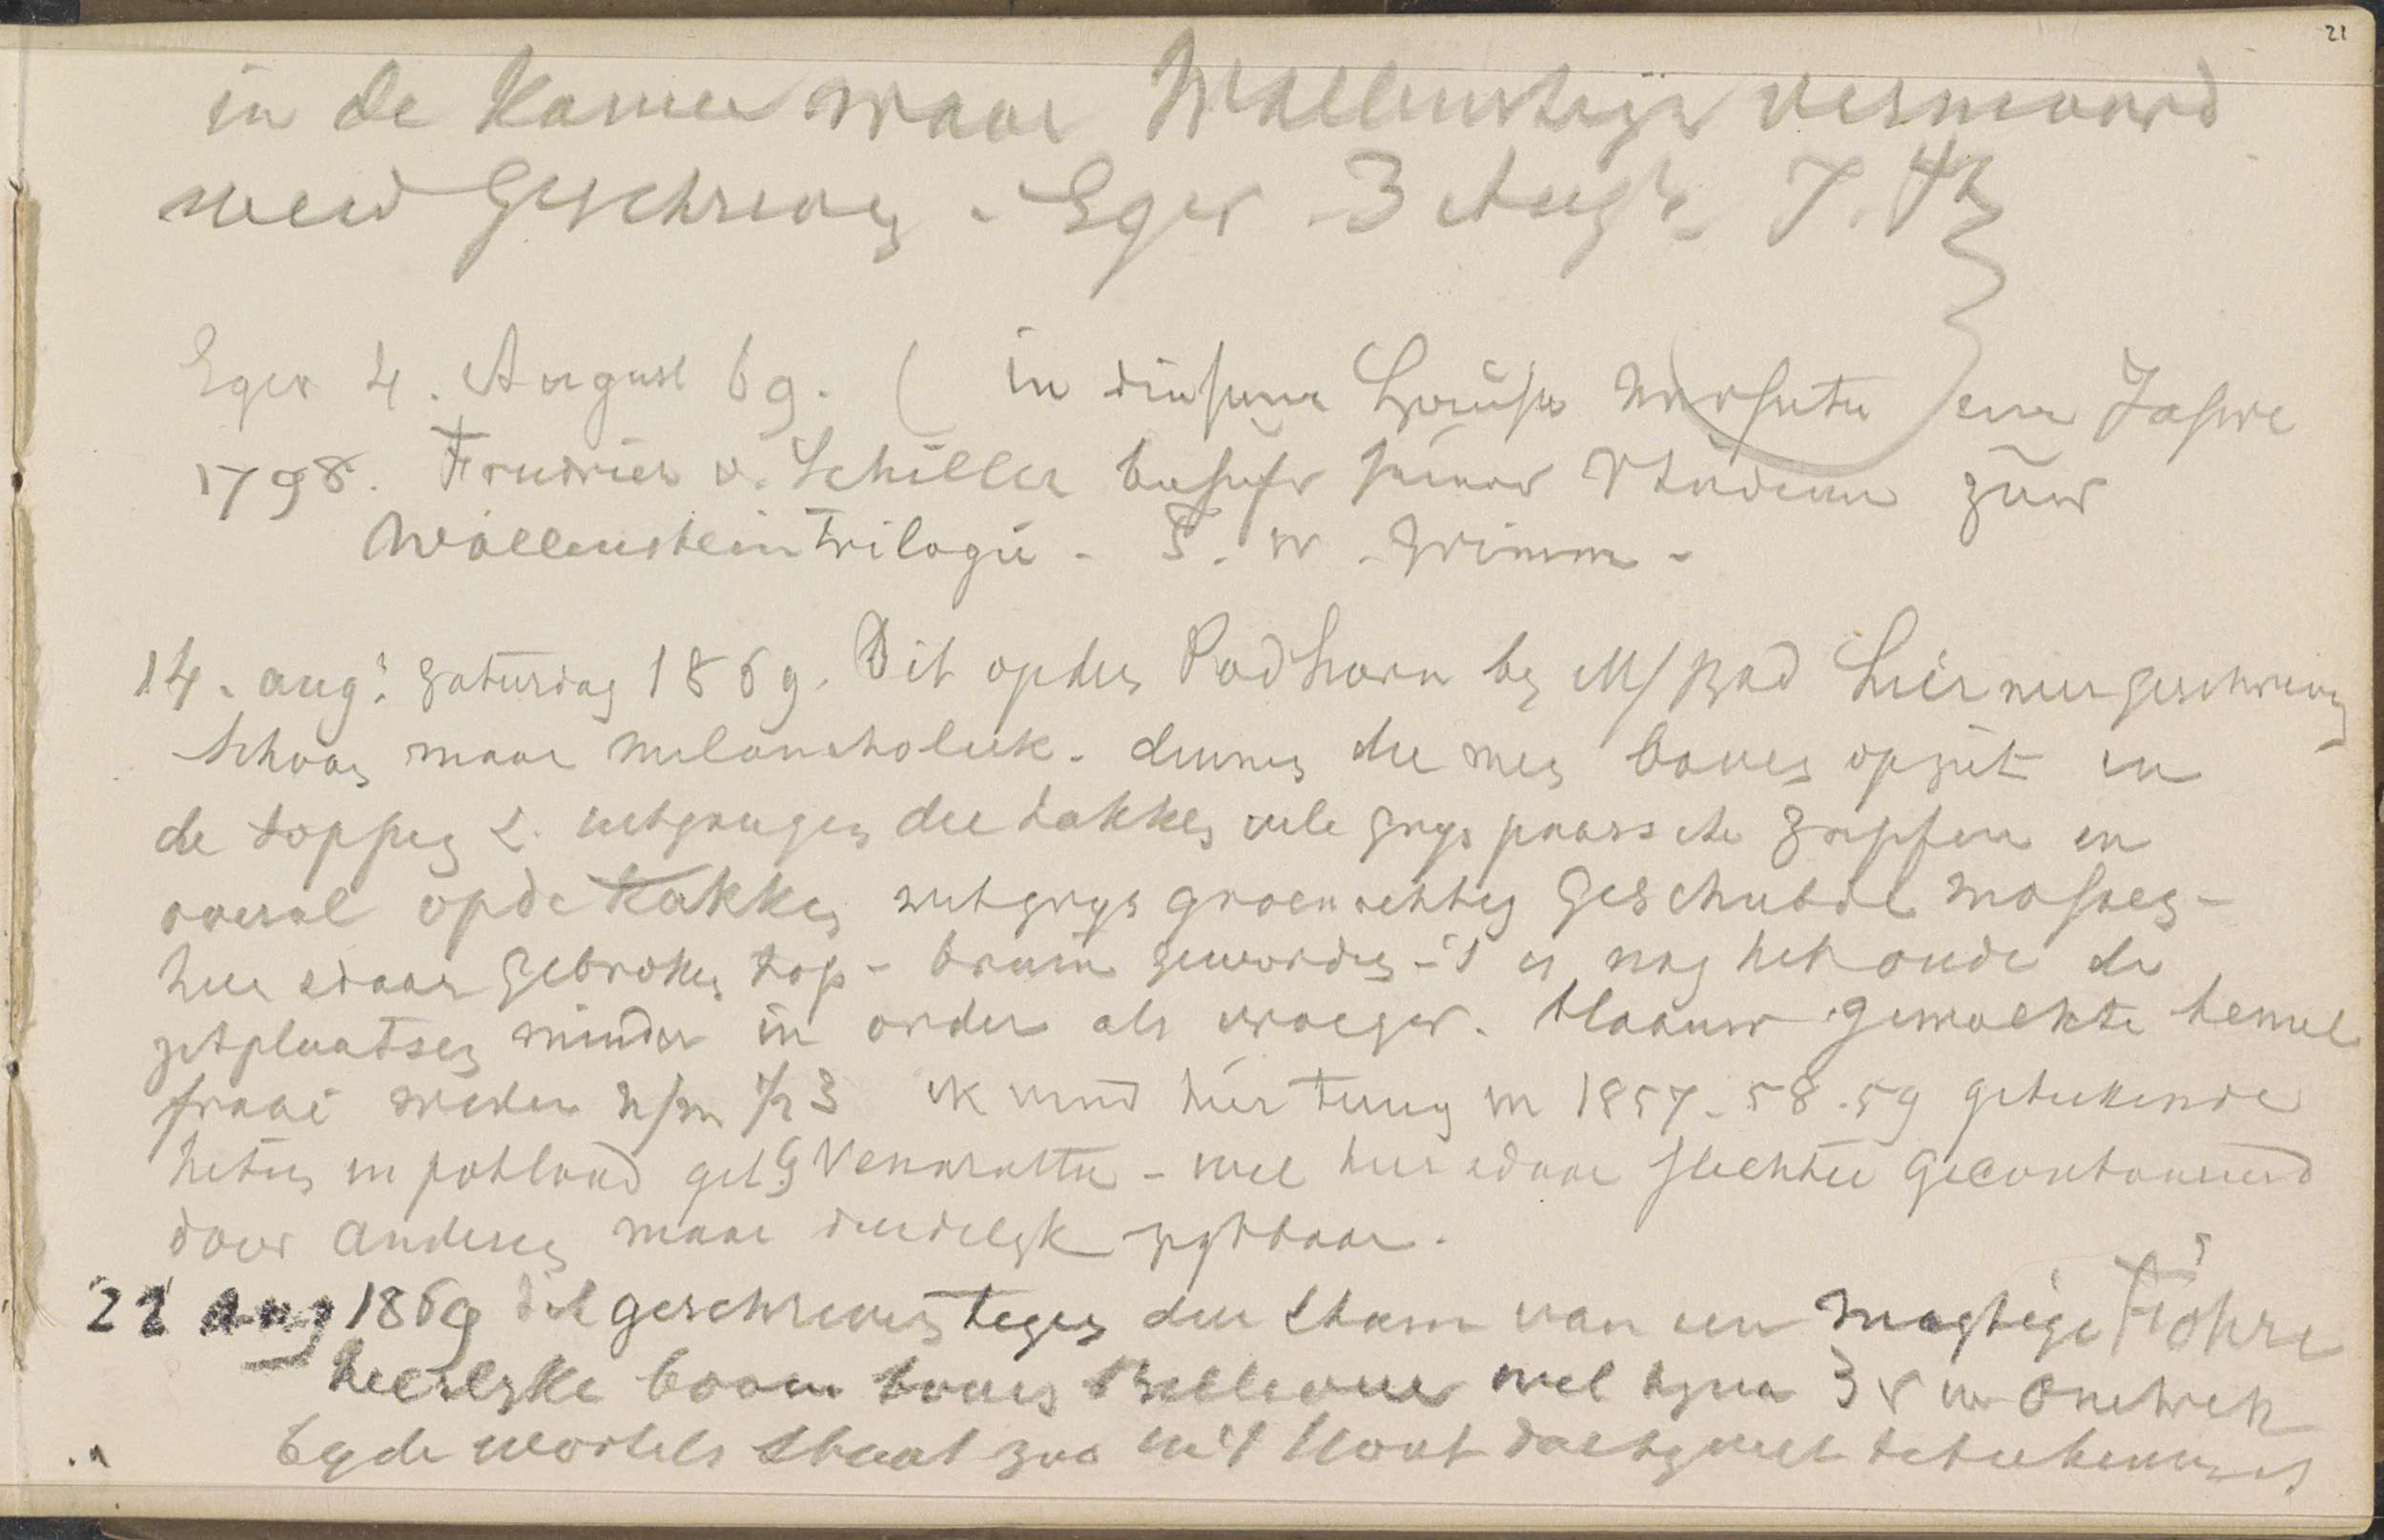 21
in de Kamer waar Wallensteijn vermoord
werd Geschreven - Eger 3 Aug
Eger 4. August 69. ( in diesem Hause wohnte im Jahre
1798. Friedrich v. Schiller behufs seiner Studien zur
Wallenstein trilogie - F. W. Grimm -
14. aug: zaturdag 1869. Dit op den Podhorn by M/Bad hier neergeschreven
schoon maar melancholiek. dennen die men boven opziet in
de toppen & uitgangen der takken vele grys paarsche zapfen en
overal op de takken witgrys groenachtig geschubde mossen -
hier & daar gebroken top - bruin geworden - 't is nog het oude de
zitplaatsen minder in orden als vroeger. blaauw gewolkte hemel
fraai weder ik vind hier terug in 1857-58-59 geteekende
in potlood wel hier & daar slechter Gecontoureerd
door anderen maar duidelyk zigtbaar.
22 Aug 1869 dit geschreven tegen den stam van een magtige Föhre
heerlyke boom boven Bellevue wel byna 3 v in omtrek
by de wortels staat zoo in 't